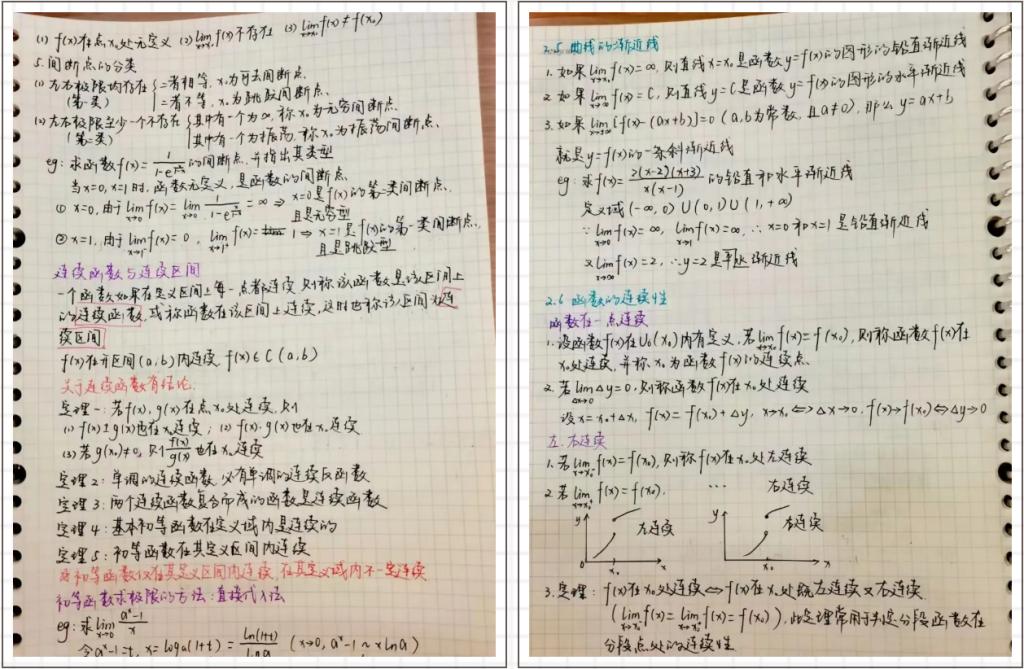 (1) f(x)在点x₀处无定义 (2) lim x→x₀ f(x)不存在 (3) lim x→x₀ f(x)≠f(x₀)
5. 间断点的分类
(1) 左右极限均存在 { 二者相等, x₀为可去间断点.
(第一类) 二者不等, x₀为跳跃间断点.
(2) 左右极限至少一个不存在 { 其中有一个为∞, 称x₀为无穷间断点.
(第二类) 其中有一个为振荡, 称x₀为振荡间断点.
eg: 求函数f(x)= 的间断点, 并指出其类型
当x=0, x=1时, 函数无定义, 是函数的间断点.
① x=0, 由于 lim x→0 f(x)= lim x→0 = ∞ ⇒ x=0是f(x)的第二类间断点,
且是无穷型
② x=1, 由于 lim x→1⁻ f(x)=0, lim x→1⁺ f(x)= 1 ⇒ x=1是f(x)的第一类间断点,
且是跳跃型
连续函数与连续区间
一个函数如果在定义区间上每一点都连续, 则称该函数是该区间上
的连续函数, 或称函数在该区间上连续, 这时也称该区间为连
续区间
f(x)在开区间(a,b)内连续 f(x)∈C(a,b)
关于连续函数有结论.
定理一: 若f(x), g(x)在点x₀处连续, 则
(1) f(x)±g(x)也在x₀连续; (2) f(x)·g(x)也在x₀连续
(3) 若g(x₀)≠0, 则 f(x)/g(x) 也在x₀连续
定理2: 单调的连续函数, 必有单调的连续反函数
定理3: 两个连续函数复合而成的函数是连续函数
定理4: 基本初等函数在定义域内是连续的
定理5: 初等函数在其定义区间内连续
初等函数仅在其定义区间内连续, 在其定义域内不一定连续
初等函数求极限的方法: 直接代入法
eg: 求 lim x→0 (aˣ-1)/x
令aˣ-1=t, x=logₐ(1+t)= ln(1+t)/ln a (x→0, aˣ-1~xlna)
2.5. 曲线的渐近线
1. 如果 lim x→x₀ f(x)=∞, 则直线x=x₀是函数y=f(x)的图形的铅直渐近线
2. 如果 lim x→∞ f(x)=C, 则直线y=C是函数y=f(x)的图形的水平渐近线
3. 如果 lim x→±∞ [f(x)-(ax+b)]=0 (a,b为常数, 且a≠0), 那么y=ax+b
就是y=f(x)的一条斜渐近线
eg: 求f(x)= 2(x-2)(x+3)/x(x-1) 的铅直和水平渐近线
定义域(-∞,0)∪(0,1)∪(1,+∞)
∵ lim x→0 f(x)=∞, lim x→1 f(x)=∞, ∴ x=0和x=1是铅直渐近线
又 lim x→∞ f(x)=2, ∴y=2是平渐近线
2.6 函数的连续性
函数在一点连续
1. 设函数f(x)在U₀(x₀)内有定义, 若 lim x→x₀ f(x)=f(x₀), 则称函数f(x)在
x₀处连续, 并称x₀为函数f(x)的连续点.
2. 若 lim Δx→0 Δy=0, 则称函数f(x)在x₀处连续
设x=x₀+Δx, f(x)=f(x₀)+Δy, x→x₀⇔Δx→0, f(x)→f(x₀)⇔Δy→0
左.右连续
1. 若 lim x→x₀⁻ f(x)=f(x₀), 则称f(x)在x₀处左连续
2. 若 lim x→x₀⁺ f(x)=f(x₀), ··· 右连续
y 左连续 x₀ x
y 右连续 x₀ x
3. 定理: f(x)在x₀处连续⇔f(x)在x₀处既左连续又右连续
( lim x→x₀⁻ f(x)= lim x→x₀⁺ f(x)=f(x₀) ), 此定理常用于判定分段函数在
分段点处的连续性